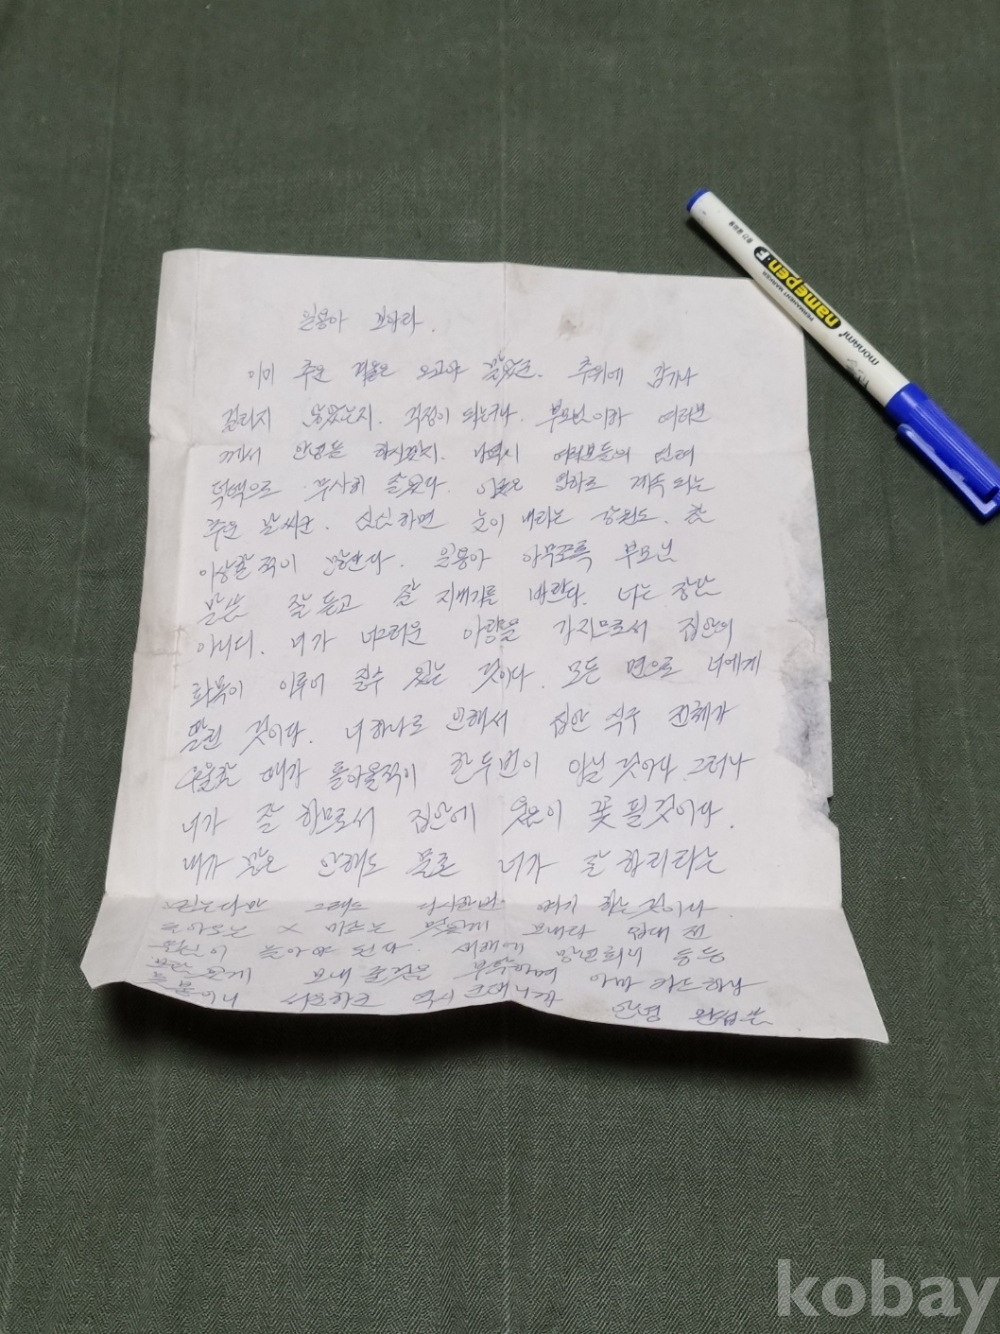 일용아 보아라.
이미 추운 겨울은 오고야 말았군. 추위에 감기나
걸리지 않았는지. 걱정이 되는구나. 부모님이하 여러분
께서 안녕들 하시겠지. 나역시 여러분들의 염려
덕택으로 무사히 잘있다. 이곳은 영하로 계속 되는
추운 날씨군. 심심하면 눈이 내리는 강원도. 참
이상할 적이 많단다. 일용아 아무쪼록 부모님
말씀 잘 듣고 잘 지내기를 바란다. 너는 장난
아니다. 너가 너그러운 아량을 가지므로서 집안의
화목이 이루어 질수 있는 것이다. 모든 면으로 너에게
딸린 것이다. 너하나로 인해서 집안 식구 전체가
우울할 때가 돌아올적이 한두번이 아닐 것이다. 그러나
너가 잘 하므로서 집안에 웃음이 꽃 필것이다.
내가 말은 안해도 물론 너가 잘 하리라는
그래도 다시한번 얘기 하는것이다
보내라 입대 전
놀아야 된다. 새해에 망년회니 등등
보내 줄것은 부탁하며 아마 카드하나
역시 안녕
monami
namepen F
PERMANENT MARKER
kobay